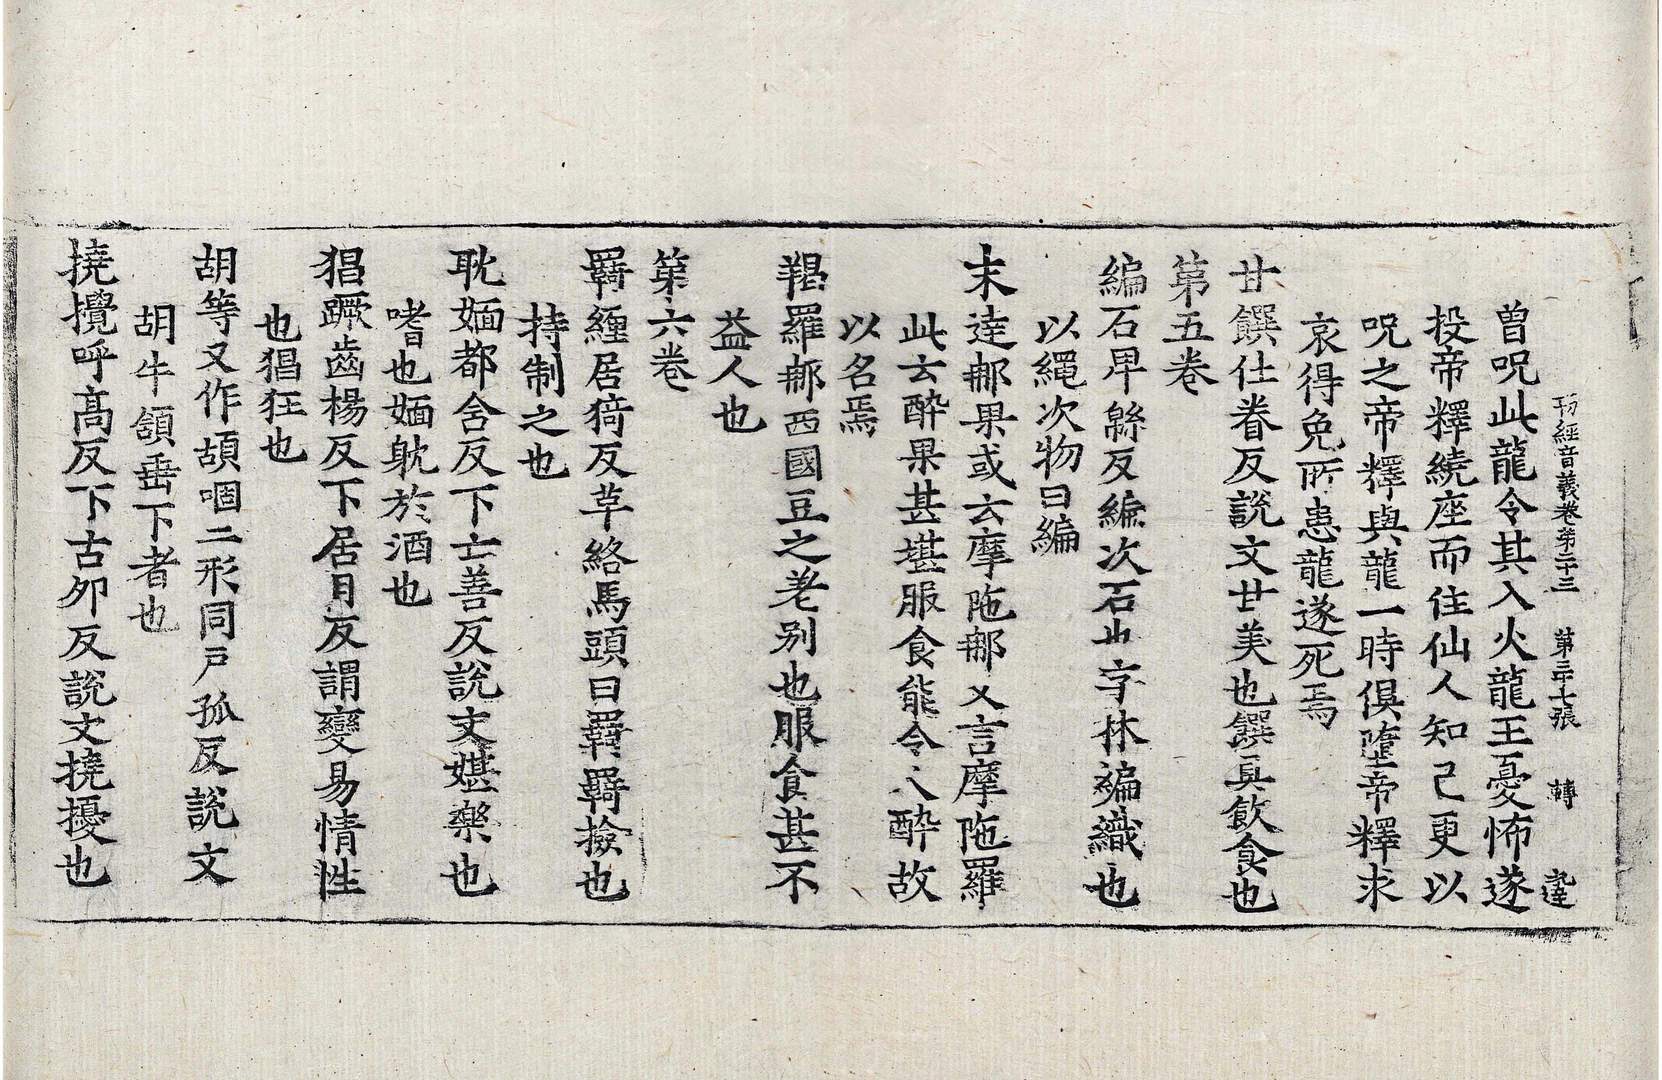 刊經音義卷第二十三 第二十七張 轉
曽呪此龍令其入火龍王憂怖遂
投帝釋繞座而住仙人知已更以
呪之帝釋與龍一時俱墮帝釋求
哀得免所患龍遂死焉
甘饌仕眷反說文甘美也饌具飲食也
第五卷
編石卑緜反編次石也字林褊織也
以繩次物曰編
末達𨚗果或云摩陁𨚗又言摩陁羅
此云酔果甚堪服食能令人酔故
以名焉
羯羅𨚗西國豆之老别也服食甚不
益人也
第六卷
羇纏居猗反草絡馬頭曰羇羇撿也
持制之也
耽婳都含反下士善反說文媅樂也
嗜也婳躭於酒也
猖蹶齒楊反下居月反謂變易情性
也猖狂也
胡等又作頡咽二形同戸孤反說文
胡牛頷垂下者也
撓攪呼髙反下古夘反說文撓擾也